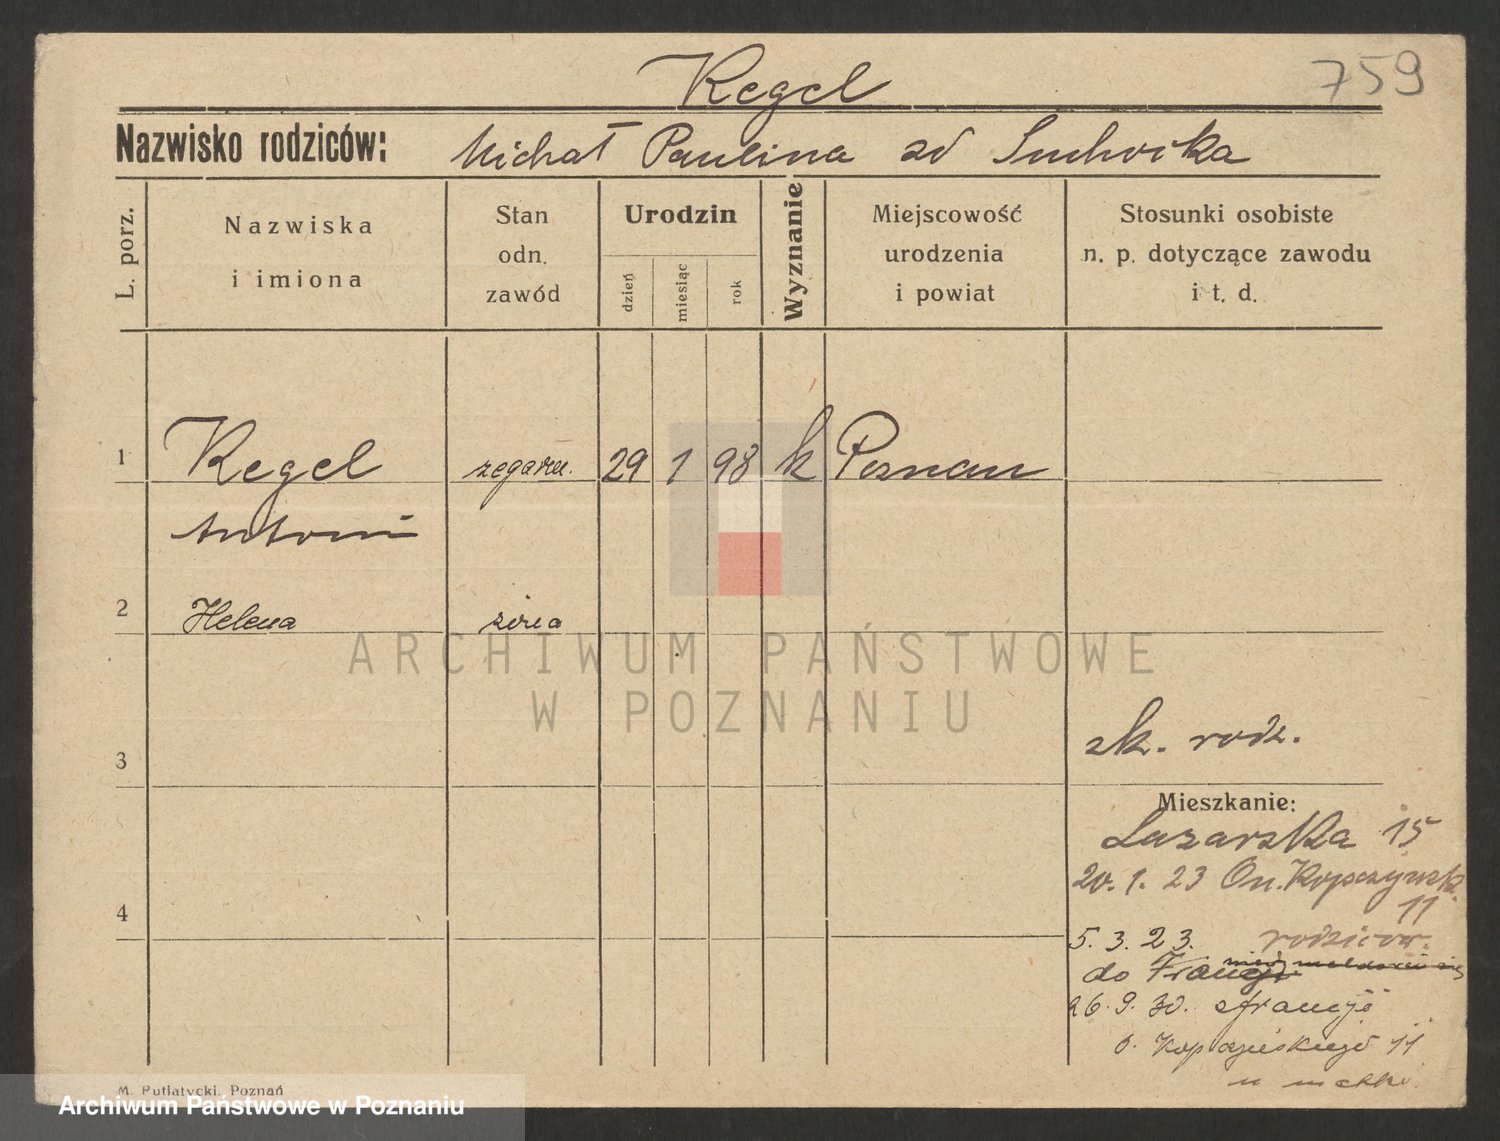 Kegel
759
Nazwisko rodziców: Michał Paulina zd Suchocka
L. porz.
Nazwiska i imiona
Stan odn. zawód
Urodzin
dzień
miesiąc
rok
Wyznanie
Miejscowość urodzenia i powiat
Stosunki osobiste n. p. dotyczące zawodu i t. d.
1 Kegel zegarm. 29 1 98 k Poznan
Antoni
2 Helena żona
ARCHIWUM PAŃSTWOWE
W POZNANIU
zk. rodz.
3
Mieszkanie:
Lazarska 15
20. 1. 23 On. Kopczyńsk.
11
4
5. 3. 23. rodzicow.
do Francji
26. 9. 30. z francji
o. Kopczińskiego 11
u matki
M. Putiatycki, Poznań
Archiwum Państwowe w Poznaniu